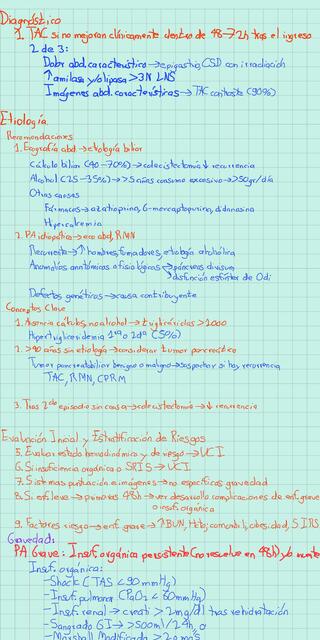 Diagnóstico
1. TAC si no mejoran clínicamente dentro de 48-72h tras el ingreso
2 de 3:
Dolor abd. característico → epigastrio/CSD con irradiación
↑ amilasa y/o lipasa >3N LNS
Imágenes abd. características → TAC contraste (90%)
Etiología
Recomendaciones
1. Ecografía abd → etiología biliar
Cálculo biliar (40-70%) → colecistectomía ↓ recurrencia
Alcohol (25-35%) → >5 años consumo excesivo → >50gr/día
Otras causas
Fármacos → azatioprina, 6-mercaptopurina, didanosina
Hipercalcemia
2. PA idiopática → eco abd, RMN
Recurrente → ↑ hombres, fumadores, etiología alcohólica
Anomalías anatómicas o fisiológicas → páncreas divisum
disfunción esfínter de Odi
Defectos genéticos → causa contribuyente
Conceptos Clave
1. Ausencia cálculos, no alcohol → triglicéridos >1000
Hipertrigliceridemia 1ria o 2da (5%)
2. >40 años sin etiología → considerar tumor pancreático
Tumor pancreatobiliar benigno o maligno → sospechar si hay recurrencia
TAC, RMN, CPRM
3. Tras 2do episodio sin causa → colecistectomía → ↓ recurrencia
Evaluación Inicial y Estratificación de Riesgos
5. Evaluar estado hemodinámico y de riesgo → UCI
6. Si insuficiencia orgánica o SRIS → UCI
7. Sistemas puntuación e imágenes → no específicos gravedad
8. Si enf. leve → primeras 48h → ver desarrollo complicaciones de enf. grave
o insf. orgánica
9. Factores riesgo → enf. grave → ↑ BUN, Htb, comorbili, obesidad, SIRS
Gravedad:
PA Grave: Insuf. orgánica persistente (no resuelve en 48h) y/o muerte
Insuf. orgánica:
-Shock (TAS <90 mmHg)
-Insuf. pulmonar (PaO2 <60mmHg)
-Insuf. renal → creati >2mg/dl tras rehidratación
-Sangrado GI → >500ml/24h, o
-Marshall Modificada